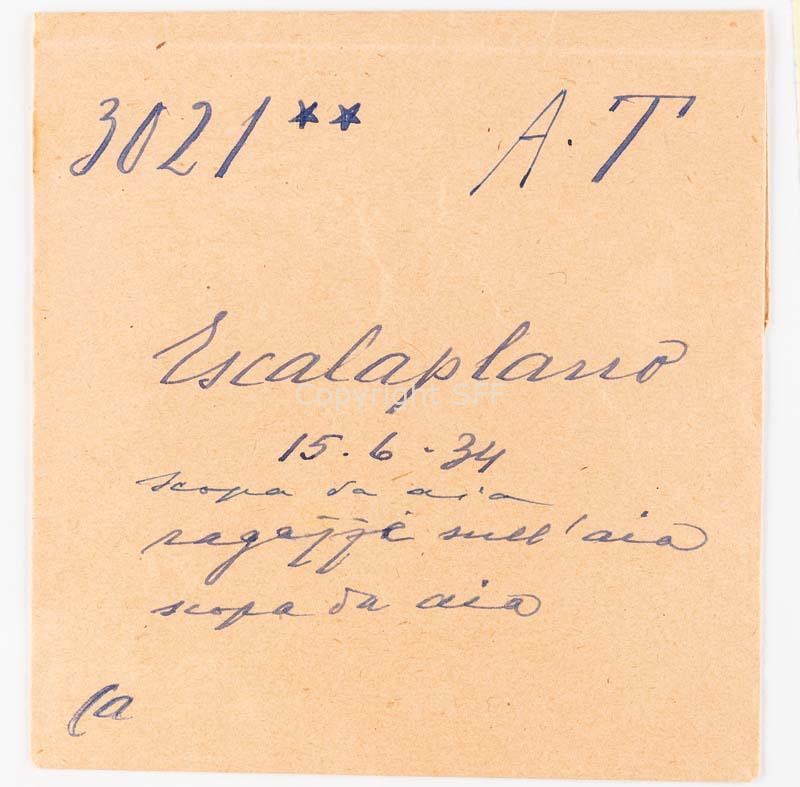 3021 ** A.T
Escalaplano
Copyright SFF
15.6-34
scopa da aia
ragazzi sull'aia
scopa da aia
Ca